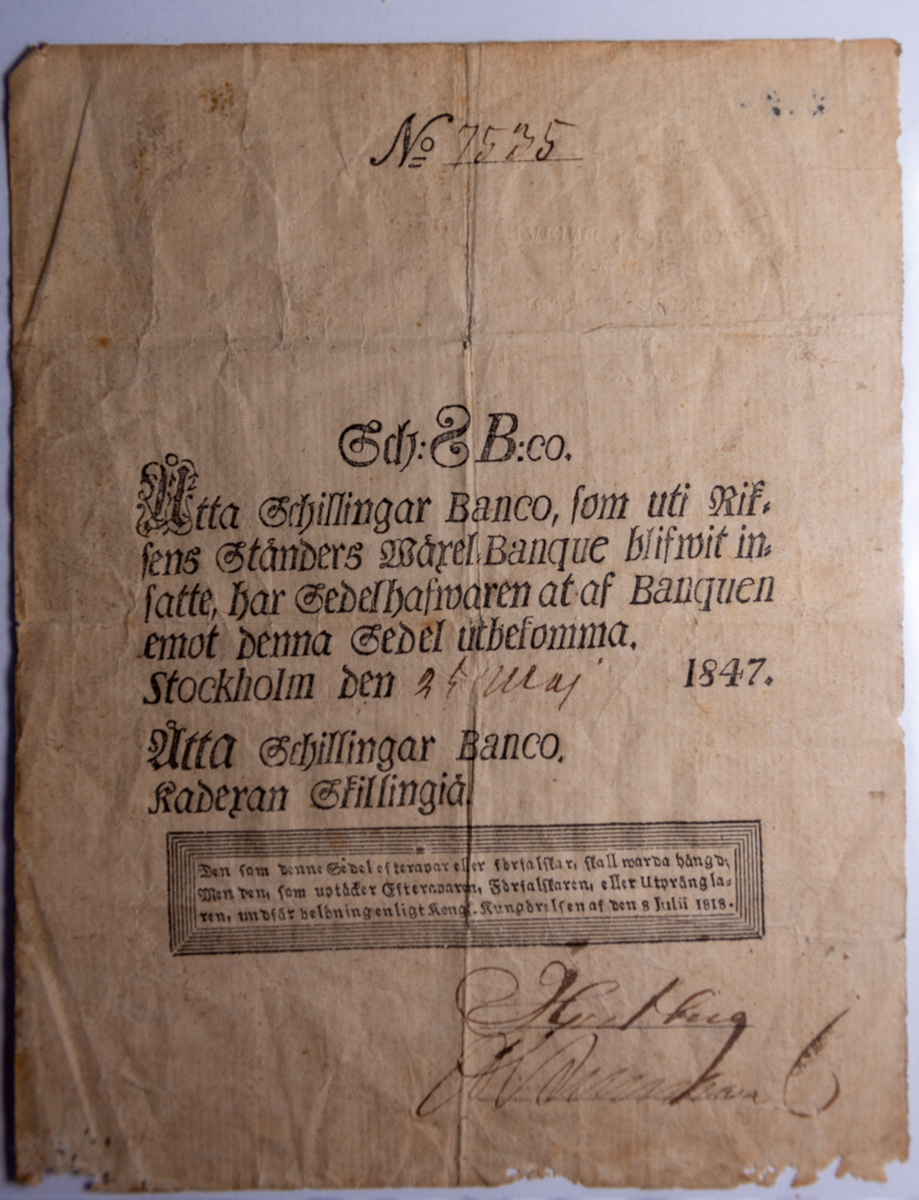 No 7535
Sch: 8 B:co.
Åtta Schillingar Banco, som uti Rik-
sens Ständers Wäxel-Banque blifwit in-
satte, har Sedelhafwaren at af Banquen
emot denna Sedel utbekomma.
Stockholm den Maj 1847.
Åtta Schillingar Banco.
Kadexan Skillingiä.
Den som denne Sedel efterapar eller förfalskar, skall warda hängd;
Men den, som uptäcker Efteraparen, Förfalskaren, eller Utprångla-
ren, undfår belöning enligt Kongl. Kungörelsen af den 8 Julii 1818.